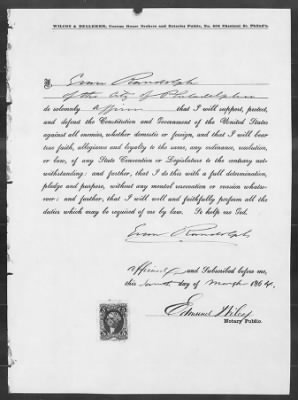 WILCOX & BELLERJEU, Custom House Brokers and Notaries Public, No.
I, Evan Randolph
of the City of Philadelphia
do solemnly affirm that I will support, protect,
and defend the Constitution and Government of the United States
against all enemies, whether domestic or foreign, and that I will bear
true faith, allegiance and loyalty to the same, any ordinance, resolution,
or law, of any State Convention or Legislature to the contrary not-
withstanding: and further, that I do this with a full determination,
pledge and purpose, without any mental reservation or evasion whatso-
ever: and further, that I will well and faithfully perform all the
duties which may be required of me by law. So help me God.
Evan Randolph
Affirmed and Subscribed before me,
this day of March 1864.
Edmund Wilcox
Notary Public.